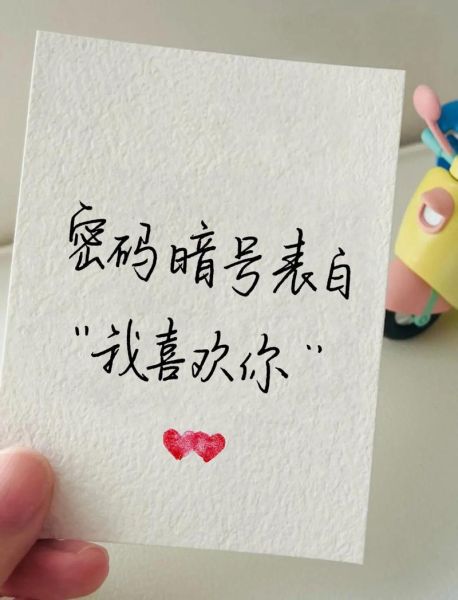 密码暗号表白
"我喜欢你"